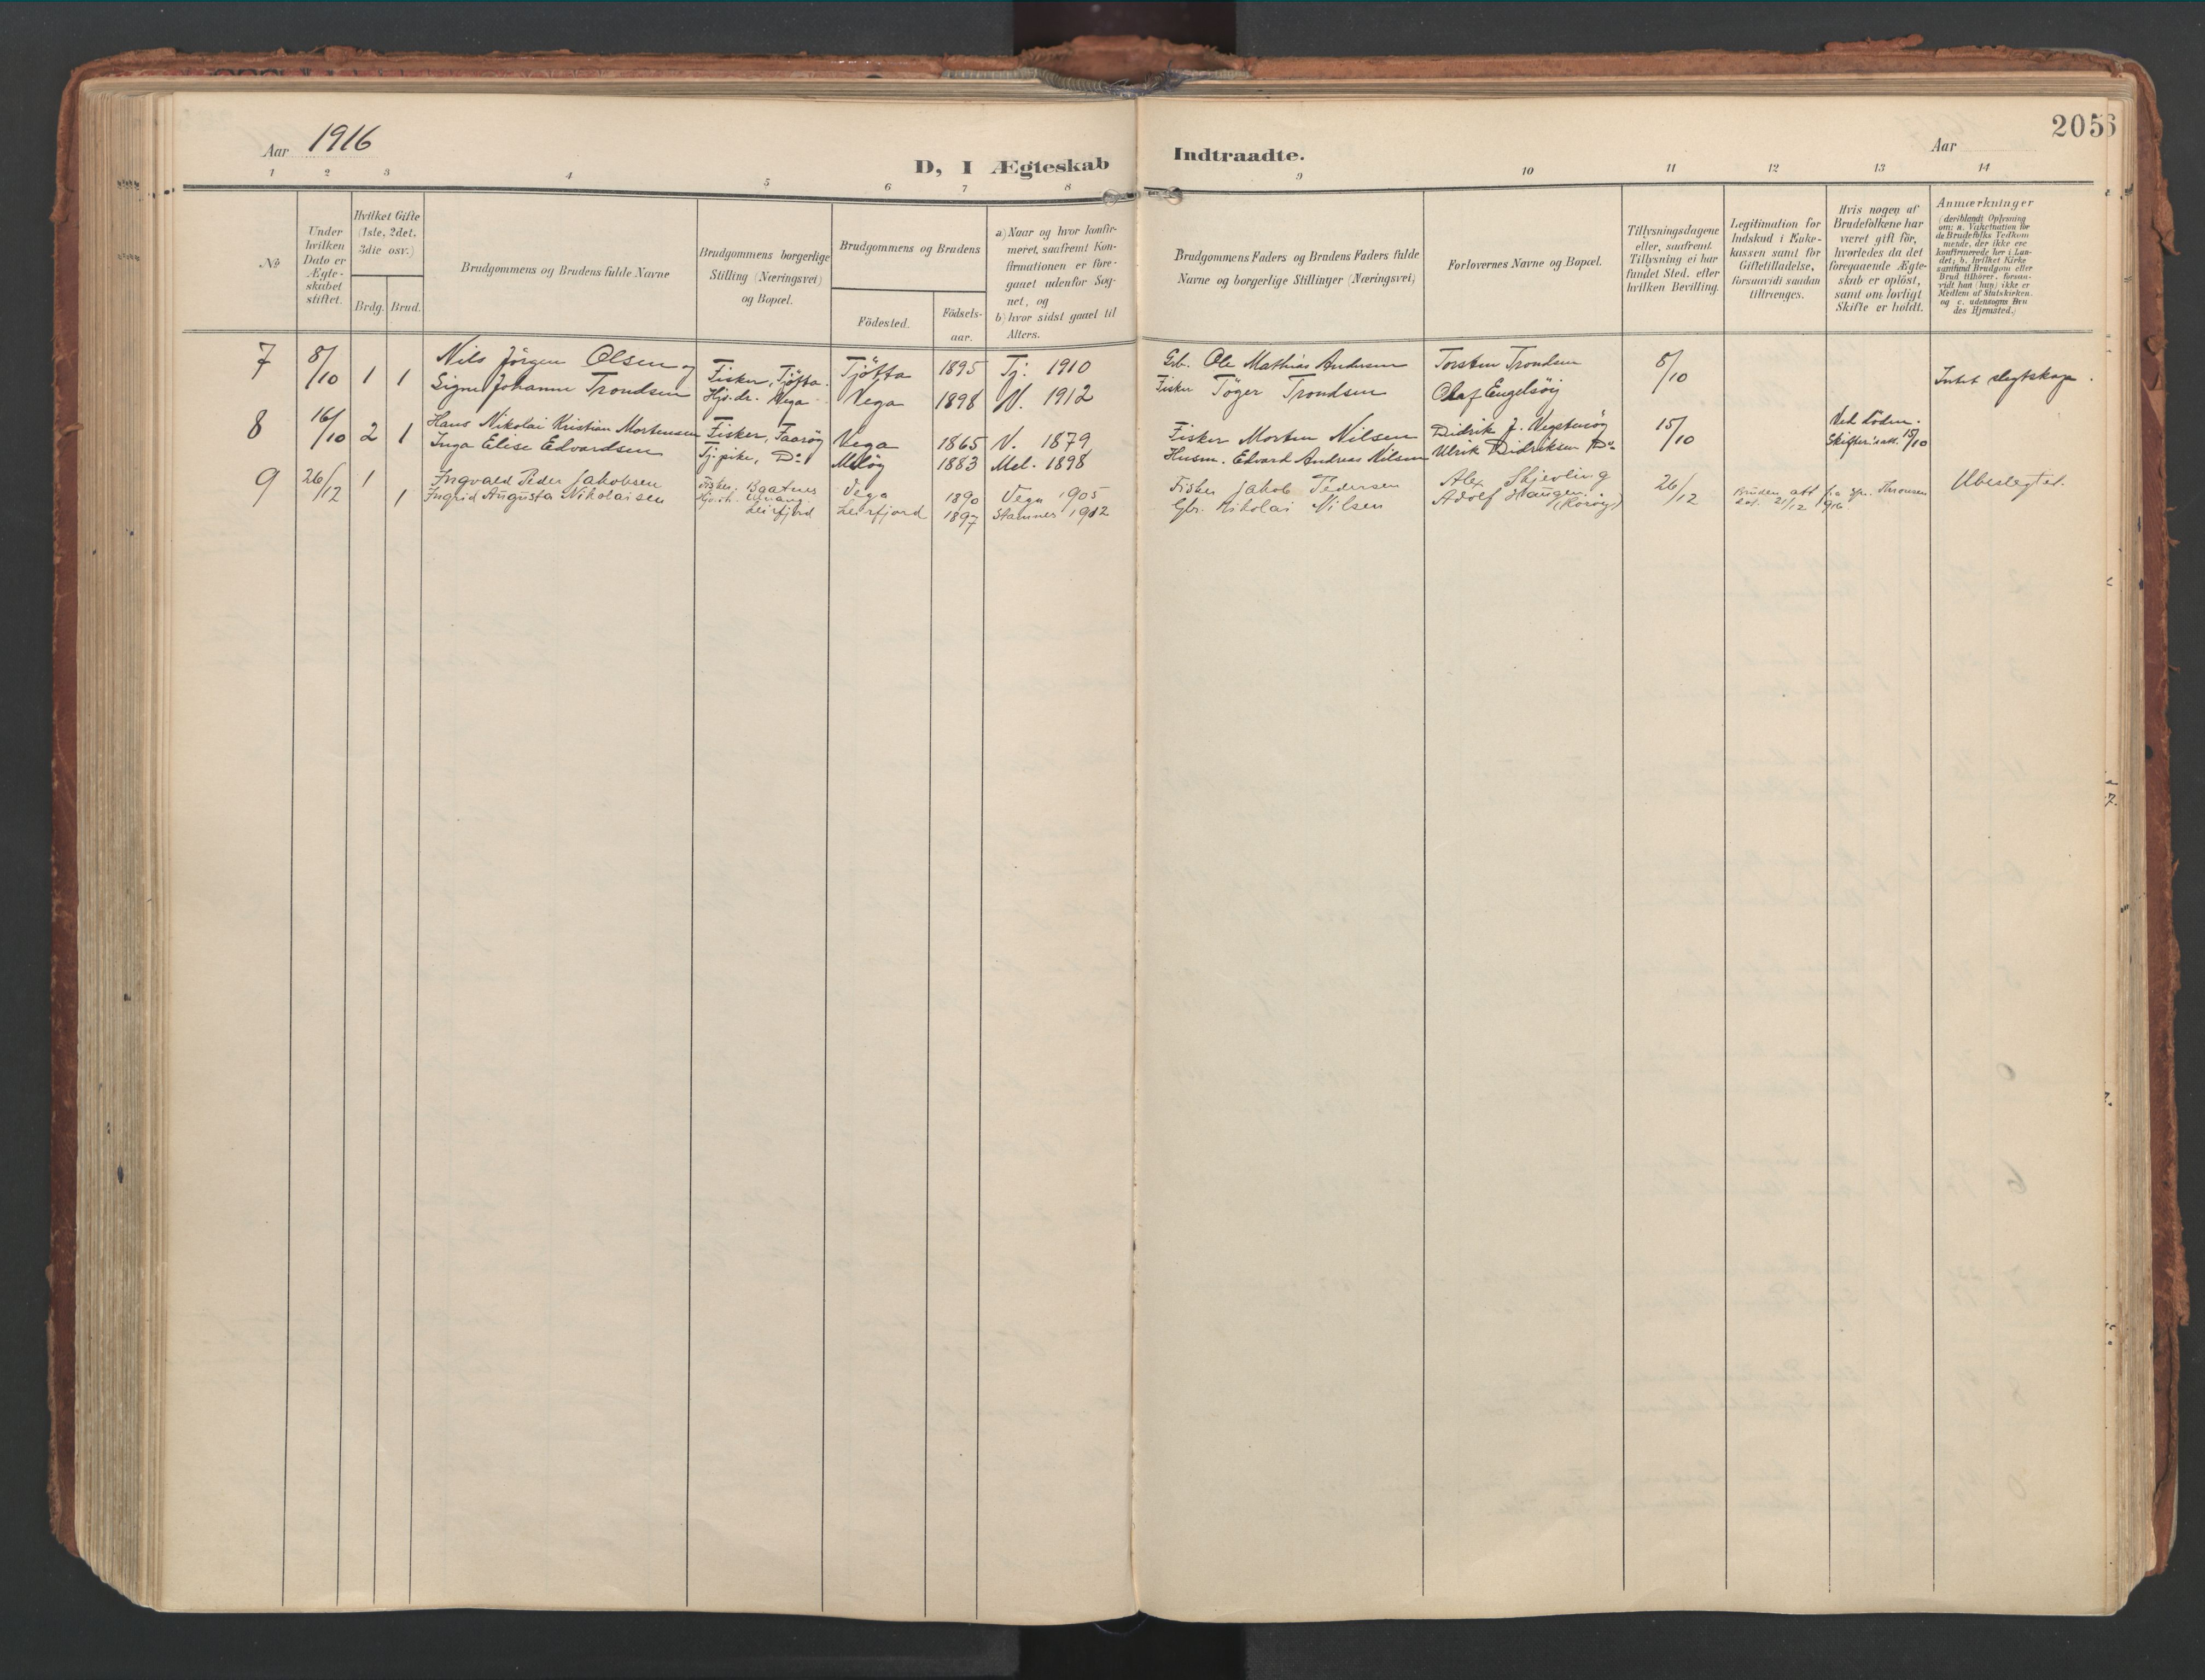 Aar 1916
D, I Ægteskab
Indtraadte.
Aar
205
1 2 3 4 5 6 7 8 9 10 11 12 13 14
№
Under
hvilken
Dato er
Ægte-
skabet
stiftet.
Hvilket Gifte
(1ste, 2det,
3die osv.)
Brdg. Brud.
Brudgommens og Brudens fulde Navne
Brudgommens borgerlige
Stilling (Næringsvei)
og Bopæl.
Brudgommens og Brudens
Födested.
Födsels-
aar.
a) Naar og hvor konfir-
meret, saafremt Kon-
firmationen er fore-
gaaet udenför Sog-
net, og
b) hvor sidst gaaet til
Alters.
Brudgommens Faders og Brudens Faders fulde
Navne og borgerlige Stillinger (Næringsvei)
Forlovernes Navne og Bopæl.
Tillysningsdagene
eller, saafremt
Tillysning ei har
fundet Sted, efter
hvilken Bevilling.
Legitimation for
Indskud i Enke-
kassen samt för
Giftetilladelse,
forsaavidt saadan
tiltrænges.
Hvis nogen af
Brudefolkene har
været gift för,
hvorledes da det
foregaaende Ægte-
skab er oplöst,
samt om lovligt
Skifte er holdt.
Anmærkninger
(deriblandt Oplysning
om: a. Vakcination for
de Brudefolks Vedkom
mende, der ikke ere
konfirmerede her i Lan-
det; b. hvilket Kirke
samfund Brudgom eller
Brud tilhörer, forsaa-
vidt han (hun) ikke er
Medlem af Statskirken.
og c. udensogns Bru
des Hjemsted.)
7 8/10 1 1 Nils Jörgen Olsen og Fisker, Tjötta. Tjötta 1895 Tj. 1910 Grb. Ole Mathias Andersen Torsten Trondsen 8/10
Signe Johanne Trondsen Hjv. dr. Vega Vega 1898 V. 1912 Fisker Töger Trondsen Olaf Engelsöy Intet slegtskap.
8 16/10 2 1 Hans Nikolai Kristian Mortensen Fisker, Faaröy Vega 1865 V. 1879 Fisker Morten Nilsen Didrik J. 15/10 Ved döden.
Inga Elise Edvardsen Tj. pike, Do Melöy 1883 Mel. 1898 Husm. Edvard Andreas Nilsen Ulrik Didriksen Do Skifteratt. 15/10
9 26/12 1 Ingvald Peder Jakobsen Fisker. Vega 1890 Vega 1905 Fisker Jakob Pedersen Alex Skjeving 26/12 Bruden att. fra spr. Ubeslegtet.
1 Ingrid Augusta Nikolaisen Leirfjord Leirfjord 1897 Stamnes 1912 Gbr. Nikolai Nilsen Adolf Haugen. 21/12 916